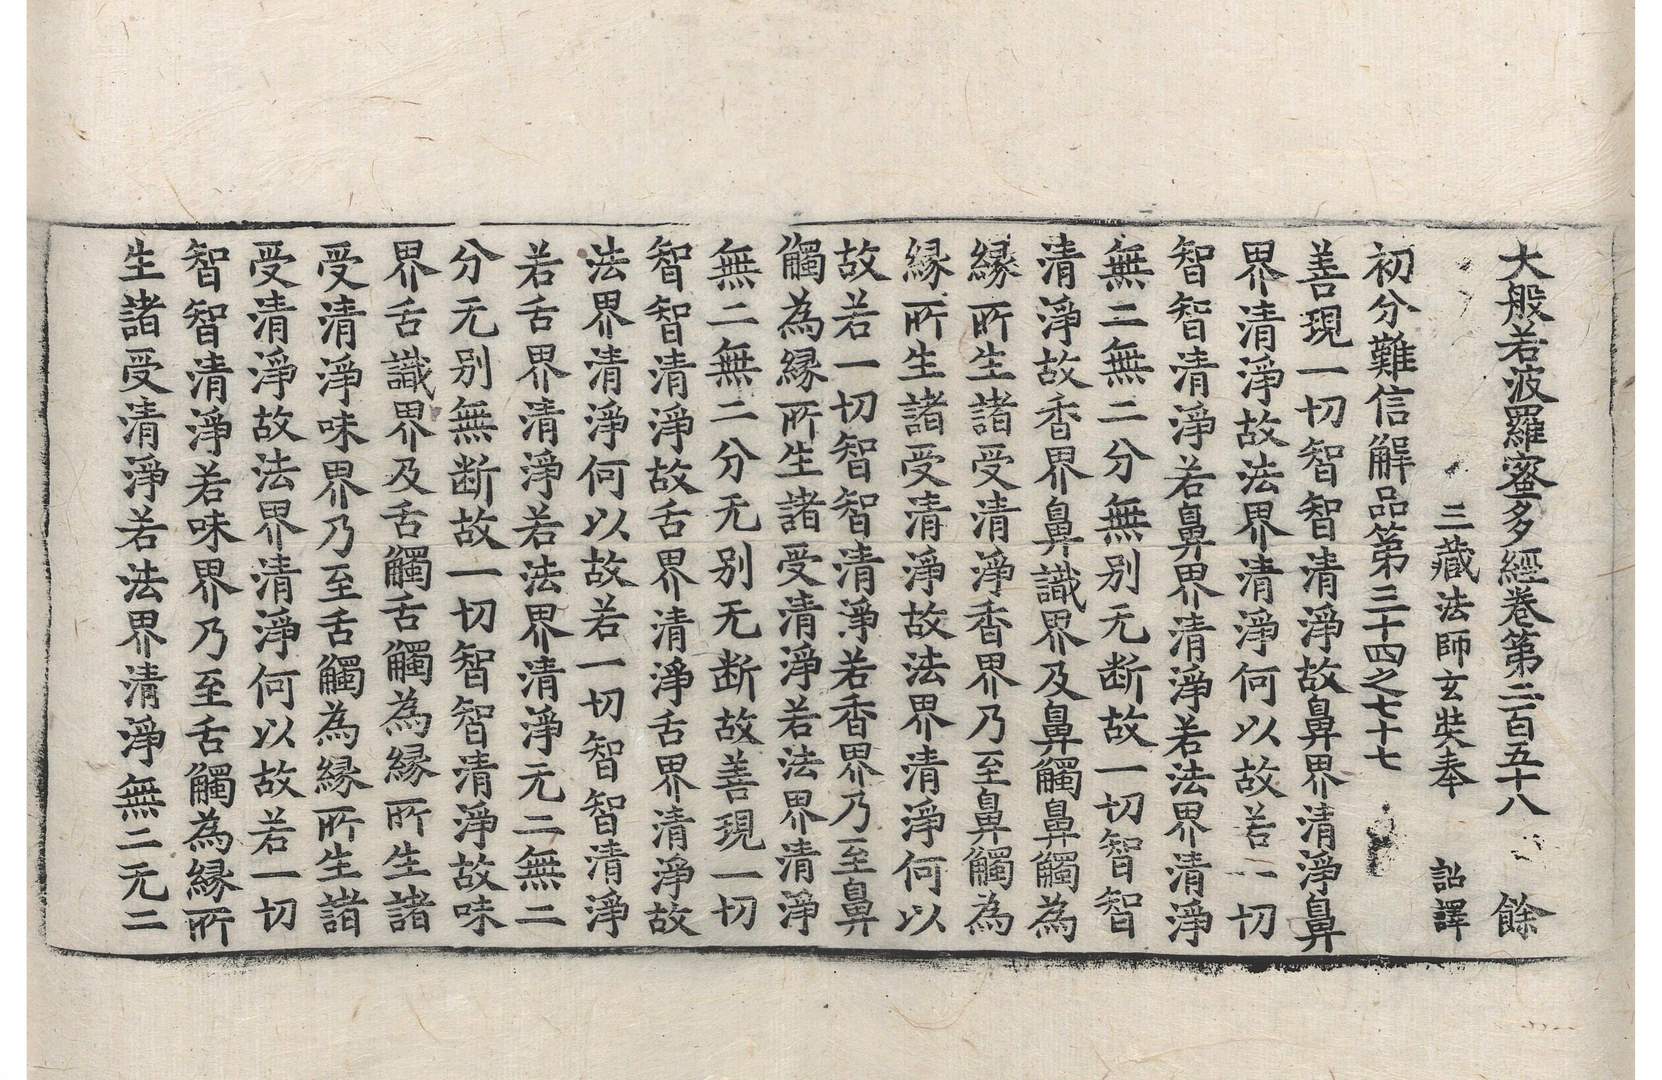 大般若波羅蜜多經卷第二百五十八 餘
三藏法師玄奘奉 詔譯
初分難信解品第三十四之七十七
善現一切智智清淨故鼻界清淨鼻
界清淨故法界清淨何以故若一切
智智清淨若鼻界清淨若法界清淨
無二無二分無別无断故一切智智
清淨故香界鼻識界及鼻觸鼻觸為
緣所生諸受清淨香界乃至鼻觸為
緣所生諸受清淨故法界清淨何以
故若一切智智清淨若香界乃至鼻
觸為緣所生諸受清淨若法界清淨
無二無二分无別无断故善現一切
智智清淨故舌界清淨舌界清淨故
法界清淨何以故若一切智智清淨
若舌界清淨若法界清淨无二無二
分无別無断故一切智智清淨故味
界舌識界及舌觸舌觸為緣所生諸
受清淨味界乃至舌觸為緣所生諸
受清淨故法界清淨何以故若一切
智智清淨若味界乃至舌觸為緣所
生諸受清淨若法界清淨無二无二